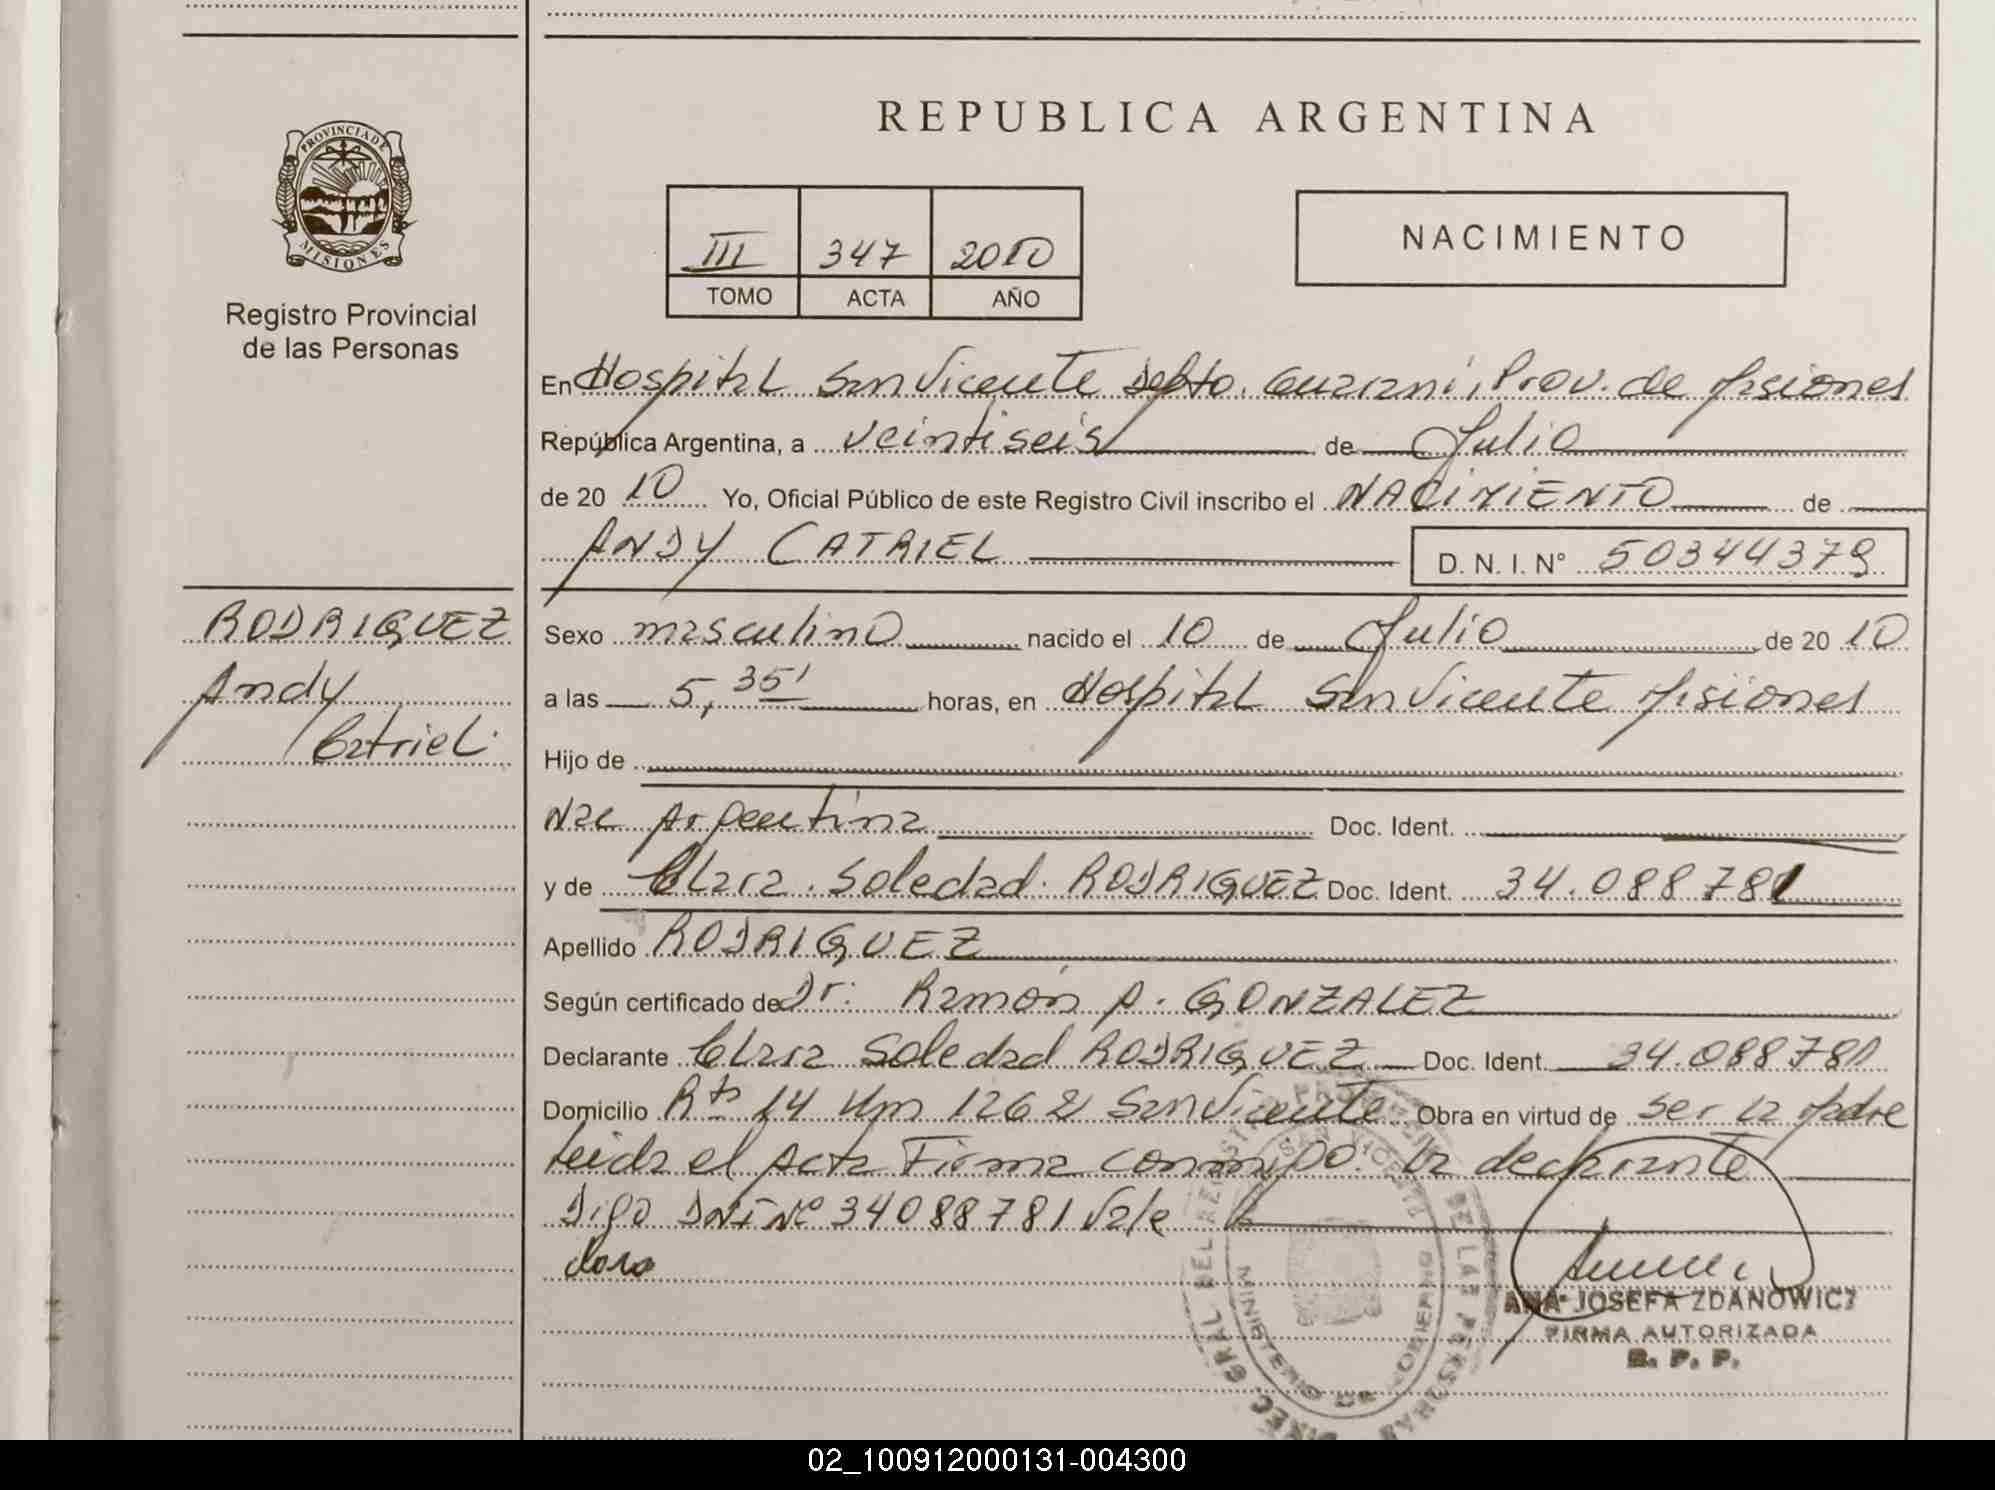 REPUBLICA ARGENTINA
PROVINCIA DE MISIONES
Registro Provincial
de las Personas
III 347 2010
TOMO ACTA AÑO
NACIMIENTO
En Hospital San Vicente Depto. Guarani, Prov. de Misiones
República Argentina, a veintiseis de Julio
de 20 10 Yo, Oficial Público de este Registro Civil inscribo el NACIMIENTO de
ANDY CATRIEL D. N. I. N° 50344379
RODRIGUEZ
Andy
Catriel.
Sexo masculino nacido el 10 de Julio de 20 10
a las 5,35' horas, en Hospital San Vicente Misiones
Hijo de
Nac Argentina Doc. Ident.
y de Clara Soledad RODRIGUEZ Doc. Ident. 34.088781
Apellido RODRIGUEZ
Según certificado de Dr: Ramón A. GONZALEZ
Declarante Clara Soledad RODRIGUEZ Doc. Ident. 34.088781
Domicilio Rta 14 Km 1262 San Vicente Obra en virtud de ser la Madre
Leida el Acta Firma conmigo la declarante
Digo DNI N° 34088781 Vale
ANA JOSEFA ZDANOWICZ
FIRMA AUTORIZADA
R. P. P.
DIREC. GRAL DEL REGISTRO PROVINCIAL DE LAS PERSONAS
SAN VICENTE
MINISTERIO DE GOBIERNO
02_100912000131-004300